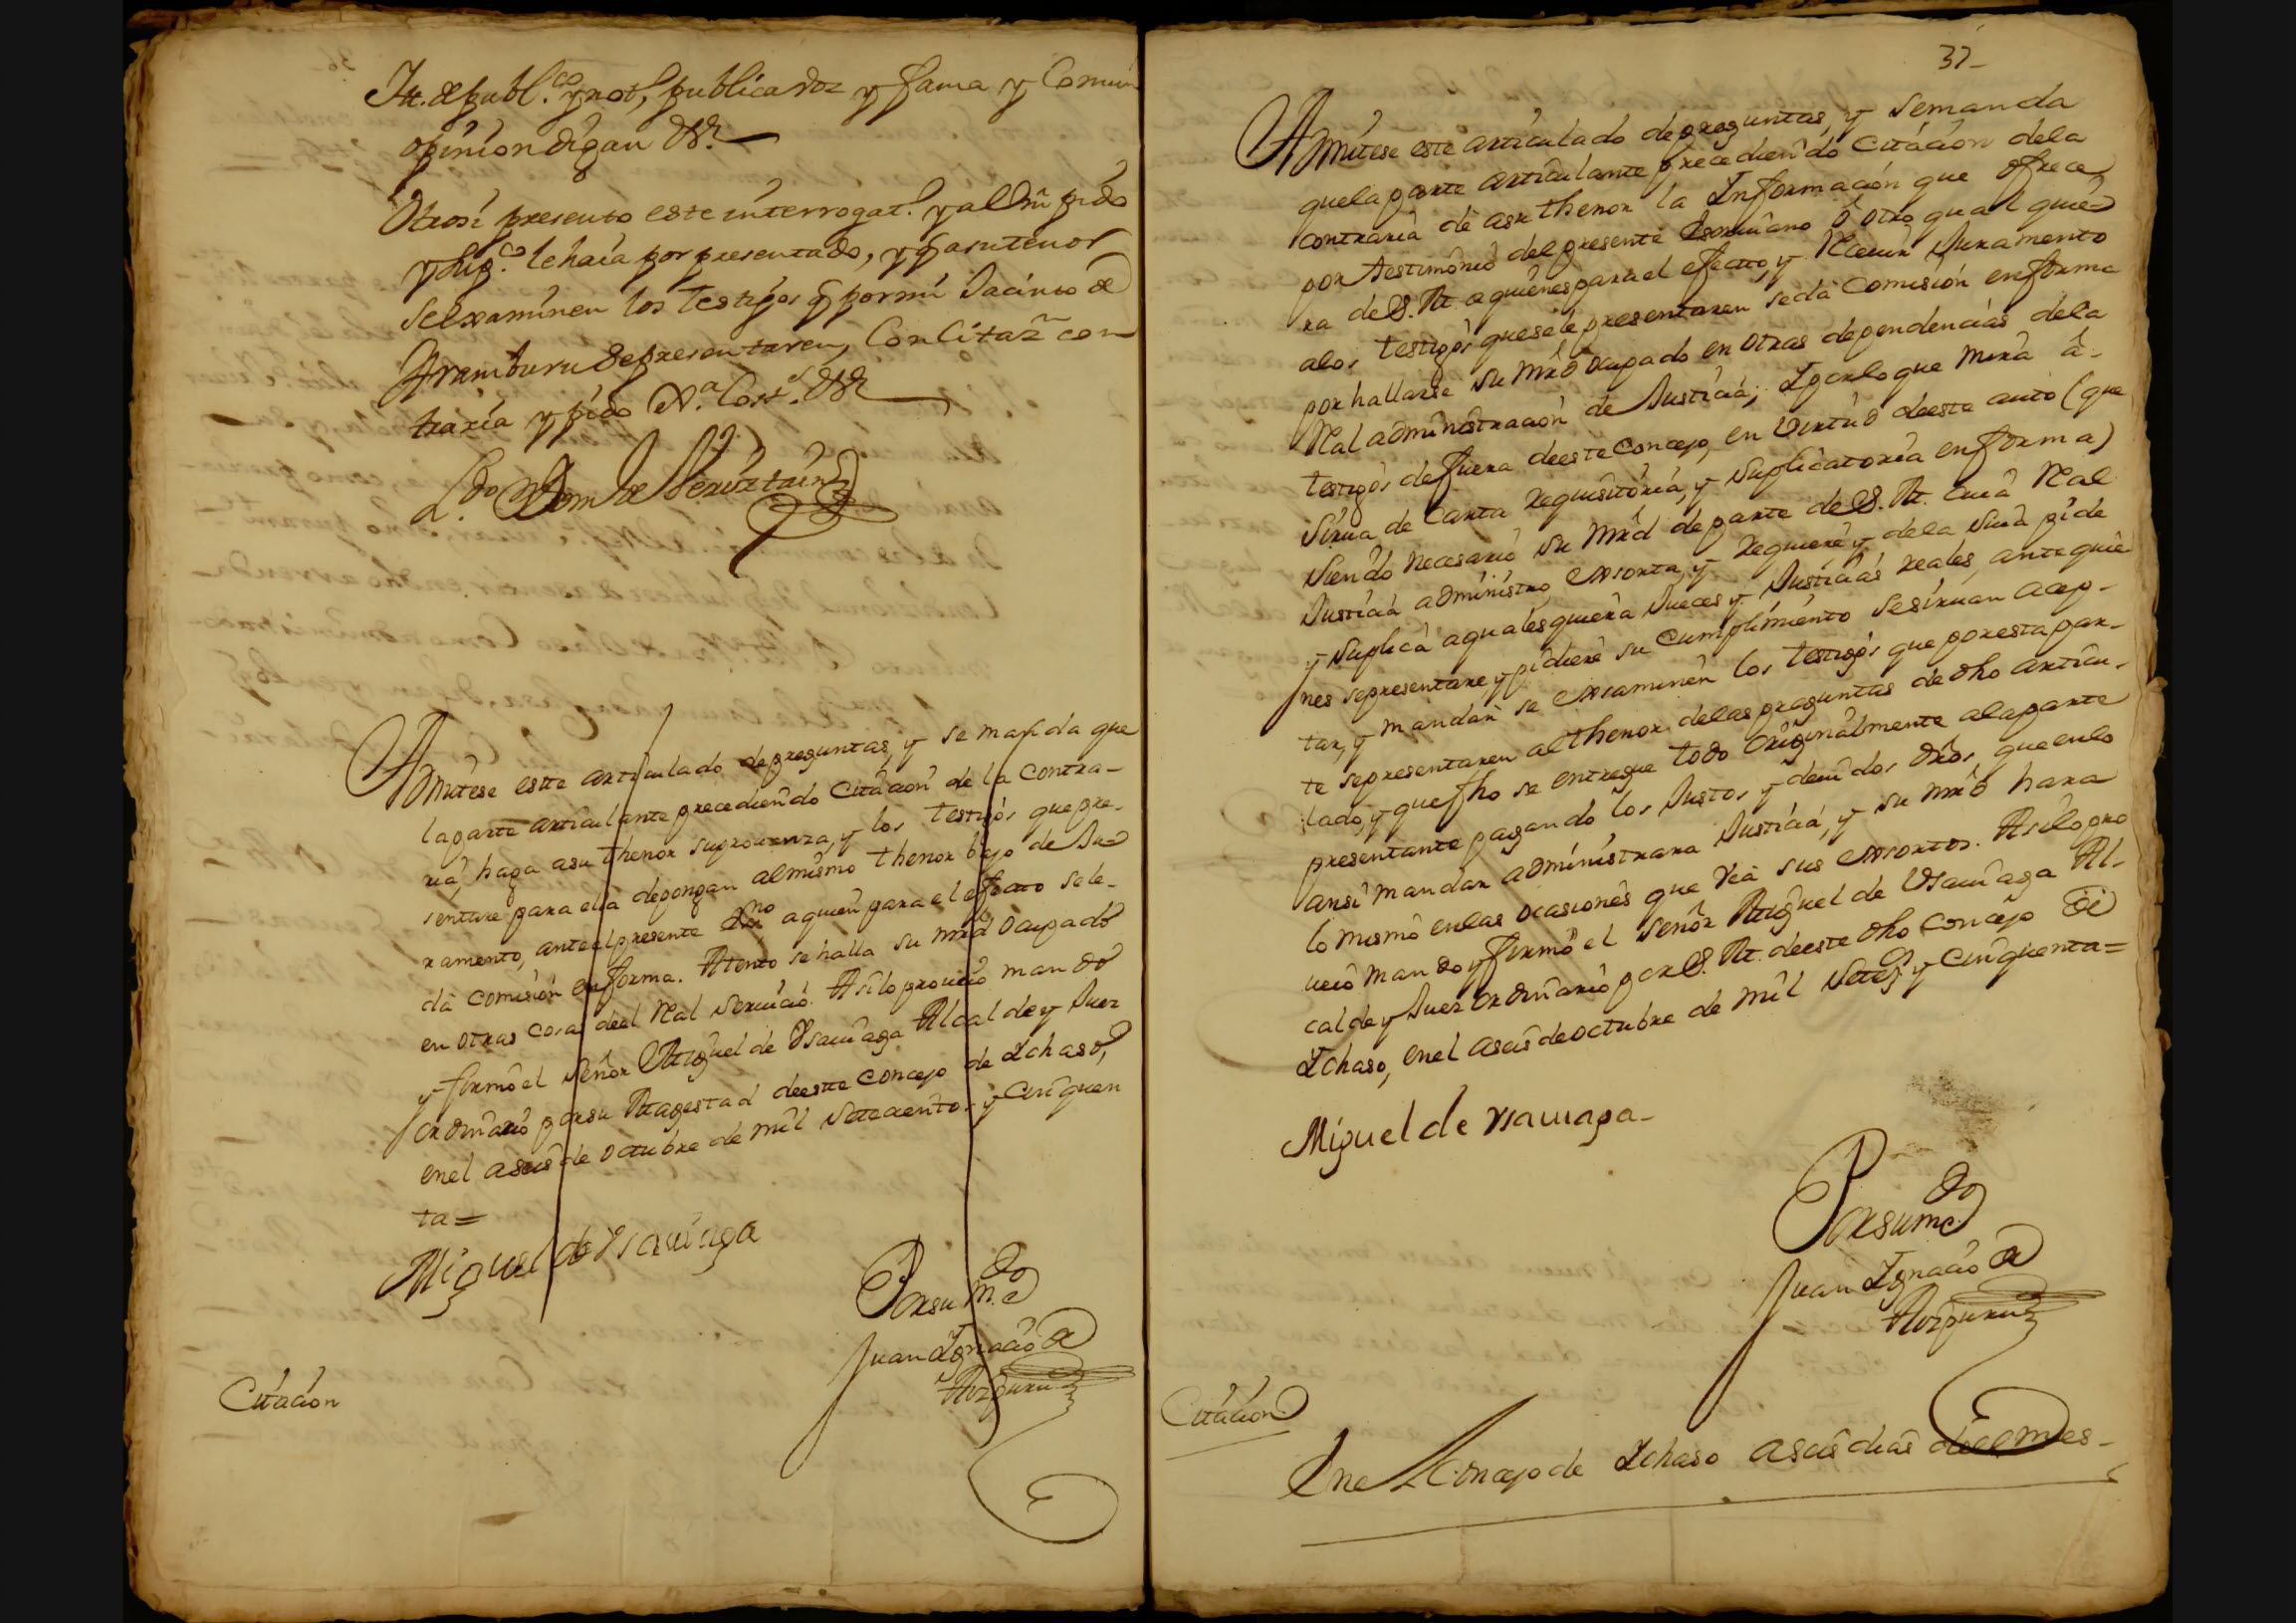 It. de publ.co y not.o, publica voz y fama y Comun
opinion digan &a.
Otrosi presento este interrogat.o y a Vm pido
y sup.co le haia por presentado, y q a su tenor
se examinen los testigos q por mi Jacinto de
Aramburu se presentaren, con Citaz.n con
traria y pido Xa. Cost.s &a
L.do Dom de
Admitese este articulado de preguntas, y se manda que
la parte articulante precediendo Citacion de la contra-
ria, haga a su thenor su provanza, y los testigos que pre-
sentare para ella depongan al mismo thenor bajo de Ju-
ramento, ante el presente Ess.no aquien para el efecto se le
da comision en forma. Atento se halla su mrd ocupado
en otras cosas del Real Servicio. Asi lo proveio mando
y firmo el Señor Miguel de Vsaviaga Alcalde y Juez
ordinario por su Magestad de este concejo de Ichaso,
en el a seis de octubre de mil Setecientos y Cinquen
ta=
Miguel de Vsaviaga
Por su m.do
Juan Ignacio de
Aozpuru
Citacion
37-
Admitese este articulado de preguntas, y se manda
que la parte articulante precediendo Citacion de la
contraria dè a su thenor la Informacion que ofrece
por testimonio del presente Escrivano ô otro qual quie-
ra de S. M. a quienes para el efecto, y Recevir Juramento
a los testigos que se le presentaren se dà Comision en forma
por hallarse su mrd ocupado en otras dependencias de la
Real administracion de Justicia; Y por lo que mira â-
testigos de fuera de este Concejo, en Virtud de este auto (que
sirva de Carta requisitoria, y suplicatoria en forma)
siendo necesario su mrd de parte de S. M. cuia Real
Justicia administro, exsorta, y requiere y de la suia pide
y suplica a qualesquiera Jueces y Justicias reales, ante quie-
nes se presentare, y pidiere su cumplimiento se sirvan acep-
tar, y mandar se exsaminen los testigos que por esta par-
te se presentaren al thenor de las preguntas de dho articu-
lado, y que fho se entregue todo originalmente a la parte
presentante pagando los Justos y devidos dros, que en lo
ansi mandar administrara Justicia, y su mrd hara
lo mismo en las ocasiones que vea sus exsortos. Asi lo pro
veio mando y firmo el Señor Miguel de Vsaviaga Al-
calde y Juez ordinario por S. M. de este dho concejo de
Ichaso, en el a seis de octubre de mil Setez.s y Cinquenta=
Miguel de Vsaviaga-
Por su m.do
Juan Ignacio de
Aozpuru
Citacion
En el Concejo de Ichaso a seis dias del mes-